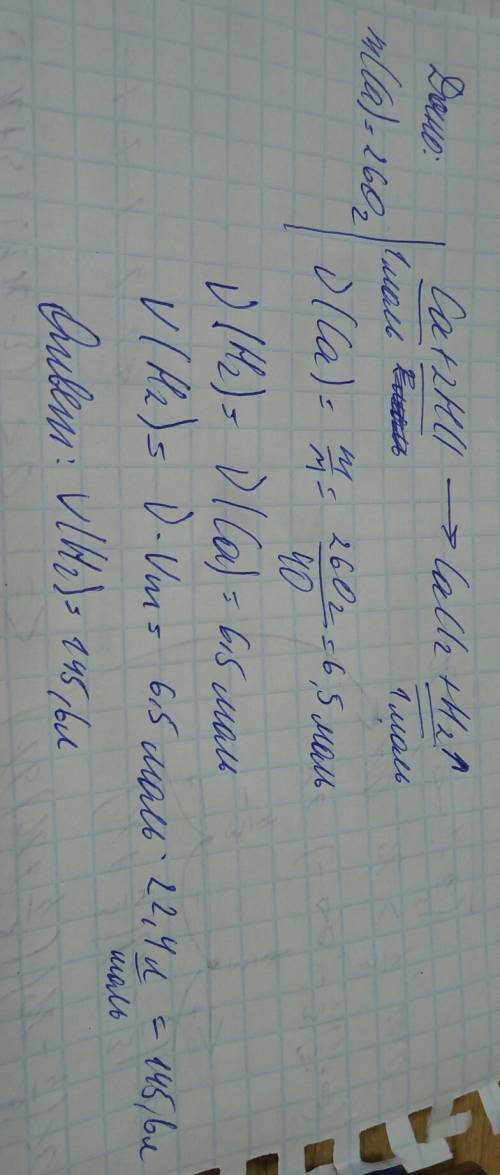 Дано:
m(Ca)=260г
Ca+2HCl → CaCl2 +H2↑
1моль 1моль
ν(Ca)= m/M = 260г/40 =6,5 моль
ν(H2)= ν(Ca)= 6,5 моль
V(H2)= ν·Vm= 6,5 моль· 22,4 л/моль = 145,6л
Ответ: V(H2)= 145,6л